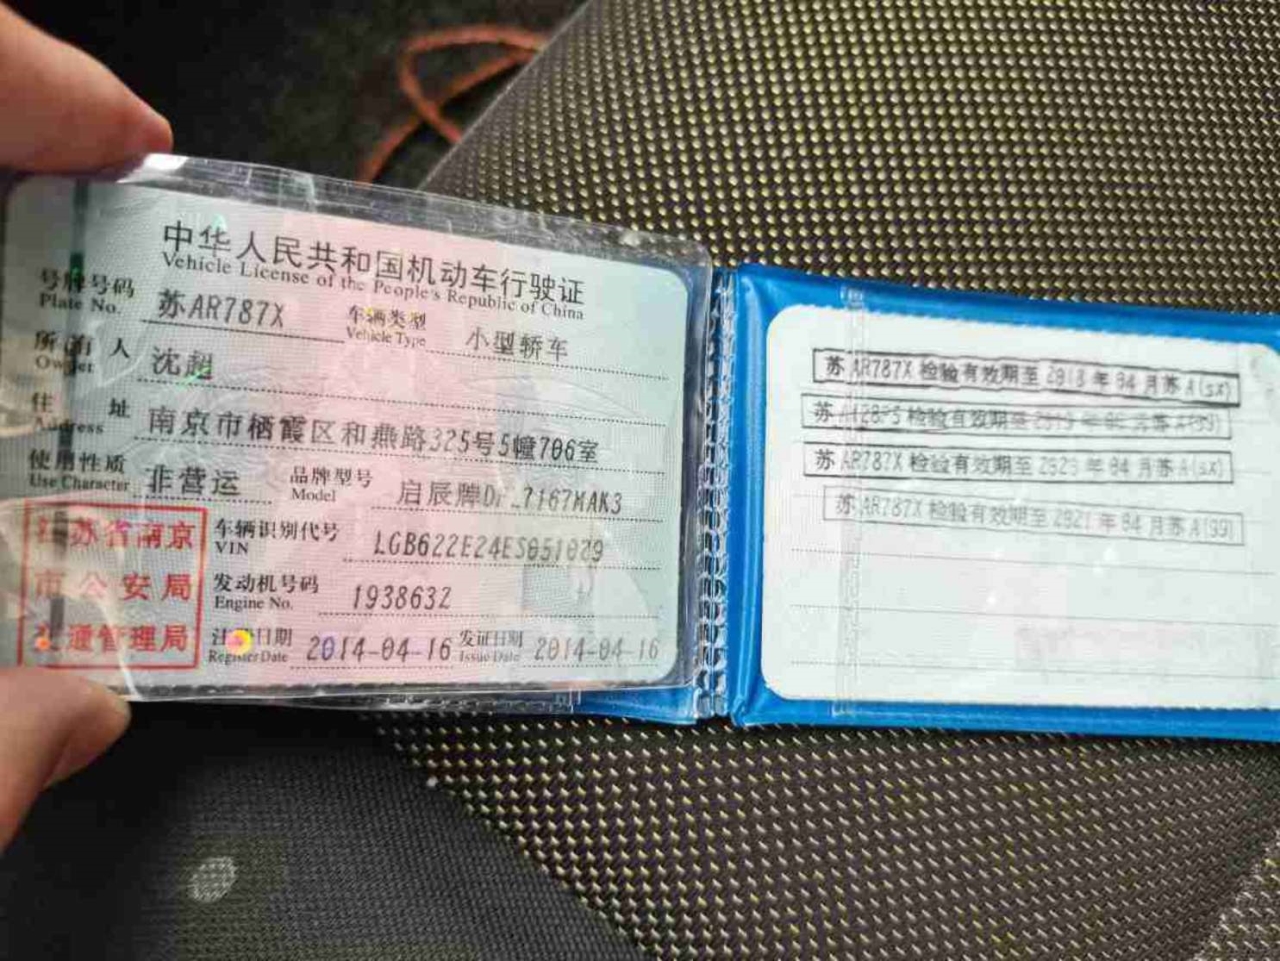 中华人民共和国机动车行驶证
Vehicle License of the People's Republic of China
号牌号码 苏AR787X 车辆类型 小型轿车
Plate No. Vehicle Type
所有人 沈超
Owner
住址 南京市栖霞区和燕路325号5幢706室
Address
使用性质 非营运 品牌型号 启辰牌DFL7167MAK3
Use Character Model
江苏省南京
市公安局
交通管理局
车辆识别代号 LGB622E24ES051029
VIN
发动机号码 193863Z
Engine No.
注册日期 2014-04-16 发证日期 2014-04-16
Register Date Issue Date
苏AR787X检验有效期至2018年04月苏A(sx)
检验有效期至2019年 月苏A(99)
苏AR787X检验有效期至2020年04月苏A(sx)
苏AR787X检验有效期至2021年04月苏A(99)